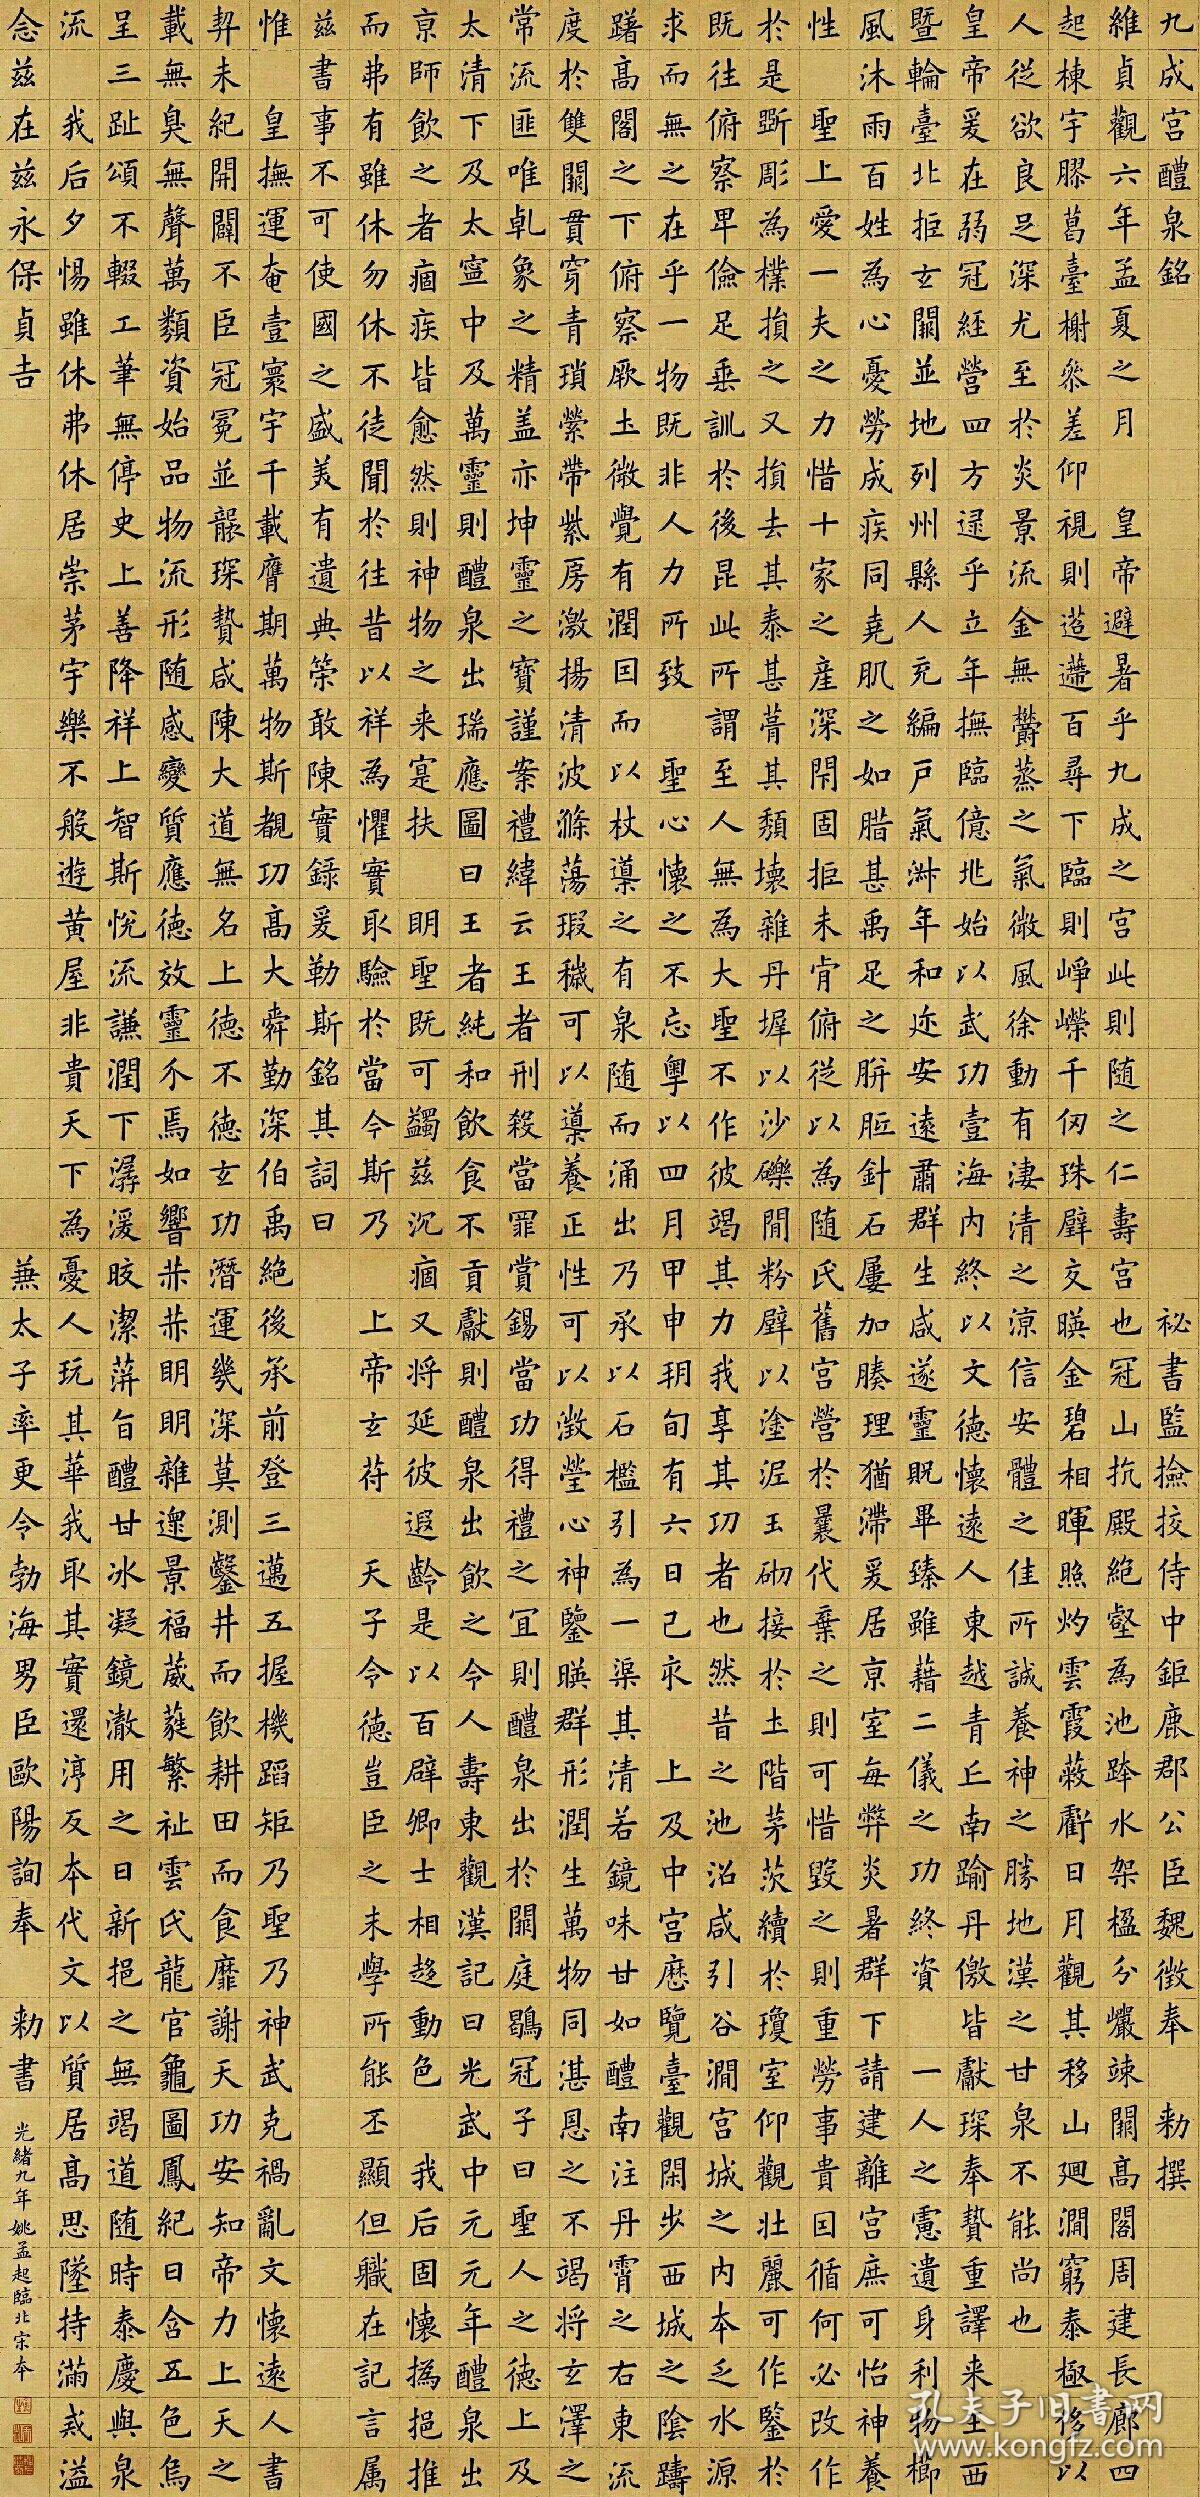 九成宮醴泉銘 祕書監撿挍侍中鉅鹿郡公臣魏徵奉 勑撰
維貞觀六年孟夏之月 皇帝避暑乎九成之宮此則随之仁壽宮也冠山抗殿絕壑為池跨水架楹分巖竦闕高閣周建長廊四
起棟宇膠葛臺榭參差仰視則迢遰百尋下臨則崢嶸千仞珠璧交暎金碧相暉照灼雲霞蔽虧日月觀其移山迴澗窮泰極侈以
人從欲良足深尤至於炎景流金無欝蒸之氣微風徐動有淒清之涼信安體之佳所誠養神之勝地漢之甘泉不能尚也
皇帝爰在弱冠經營四方逮乎立年撫臨億兆始以武功壹海內終以文德懷遠人東越青丘南踰丹儌皆獻琛奉贄重譯来王西
暨輪臺北拒玄闕並地列州縣人充編戶氣淑年和迩安遠肅群生咸遂靈貺畢臻雖藉二儀之功終資一人之慮遺身利物櫛
風沐雨百姓為心憂勞成疾同堯肌之如腊甚禹足之胼胝針石屢加腠理猶滯爰居京室每弊炎暑群下請建離宮庶可怡神養
性 聖上愛一夫之力惜十家之產深閇固拒未肯俯從以為随氏舊宮營於曩代棄之則可惜毀之則重勞事貴因循何必改作
於是斲彫為樸損之又損去其泰甚葺其頹壞雜丹墀以沙礫間粉壁以塗泥玉砌接於土階茅茨續於瓊室仰觀壯麗可作鑒於
既往俯察卑儉足垂訓於後昆此所謂至人無為大聖不作彼竭其力我享其功者也然昔之池沼咸引谷澗宮城之內本乏水源
求而無之在乎一物既非人力所致 聖心懷之不忘粵以四月甲申朔旬有六日己亥 上及中宮歷覽臺觀閑步西城之陰躊
躇高閣之下俯察厥土微覺有潤因而以杖導之有泉随而涌出乃承以石檻引為一渠其清若鏡味甘如醴南注丹霄之右東流
度於雙闕貫穿青瑣縈帶紫房激揚清波滌蕩瑕穢可以導養正性可以澂瑩心神鑒暎群形潤生萬物同湛恩之不竭將玄澤之
常流匪唯乹象之精盖亦坤靈之寶謹案禮緯云王者刑殺當罪賞錫當功得禮之宜則醴泉出於闕庭鶡冠子曰聖人之德上及
太清下及太寧中及萬靈則醴泉出瑞應圖曰王者純和飲食不貢獻則醴泉出飲之令人壽東觀漢記曰光武中元元年醴泉出
京師飲之者痼疾皆愈然則神物之来寔扶 明聖既可蠲茲沉痼又將延彼遐齡是以百辟卿士相趍動色 我后固懷撝挹推
而弗有雖休勿休不徒聞於往昔以祥為懼實取驗於當今斯乃 上帝玄符 天子令德豈臣之末學所能丕顯但職在記言属
茲書事不可使國之盛美有遺典策敢陳實錄爰勒斯銘其詞曰
惟 皇撫運奄壹寰宇千載膺期萬物斯覩功高大舜勤深伯禹絕後承前登三邁五握機蹈矩乃聖乃神武克禍亂文懷遠人書
契未紀開闢不臣冠冕並襲琛贄咸陳大道無名上德不德玄功潛運幾深莫測鑿井而飲耕田而食靡謝天功安知帝力上天之
載無臭無聲萬類資始品物流形随感變質應德效靈介焉如響赫赫明明雜遝景福葳蕤繁祉雲氏龍官龜圖鳳紀日含五色烏
呈三趾頌不輟工筆無停史上善降祥上智斯悅流謙潤下潺湲皎潔蓱旨醴甘冰凝鏡澈用之日新挹之無竭道随時泰慶與泉
流 我后夕惕雖休弗休居崇茅宇樂不般遊黃屋非貴天下為憂人玩其華我取其實還淳反本代文以質居高思墜持滿戒溢
念茲在茲永保貞吉 兼太子率更令勃海男臣歐陽詢奉 勑書
光緒九年姚孟起臨北宋本
孔夫子旧书网
www.kongfz.com